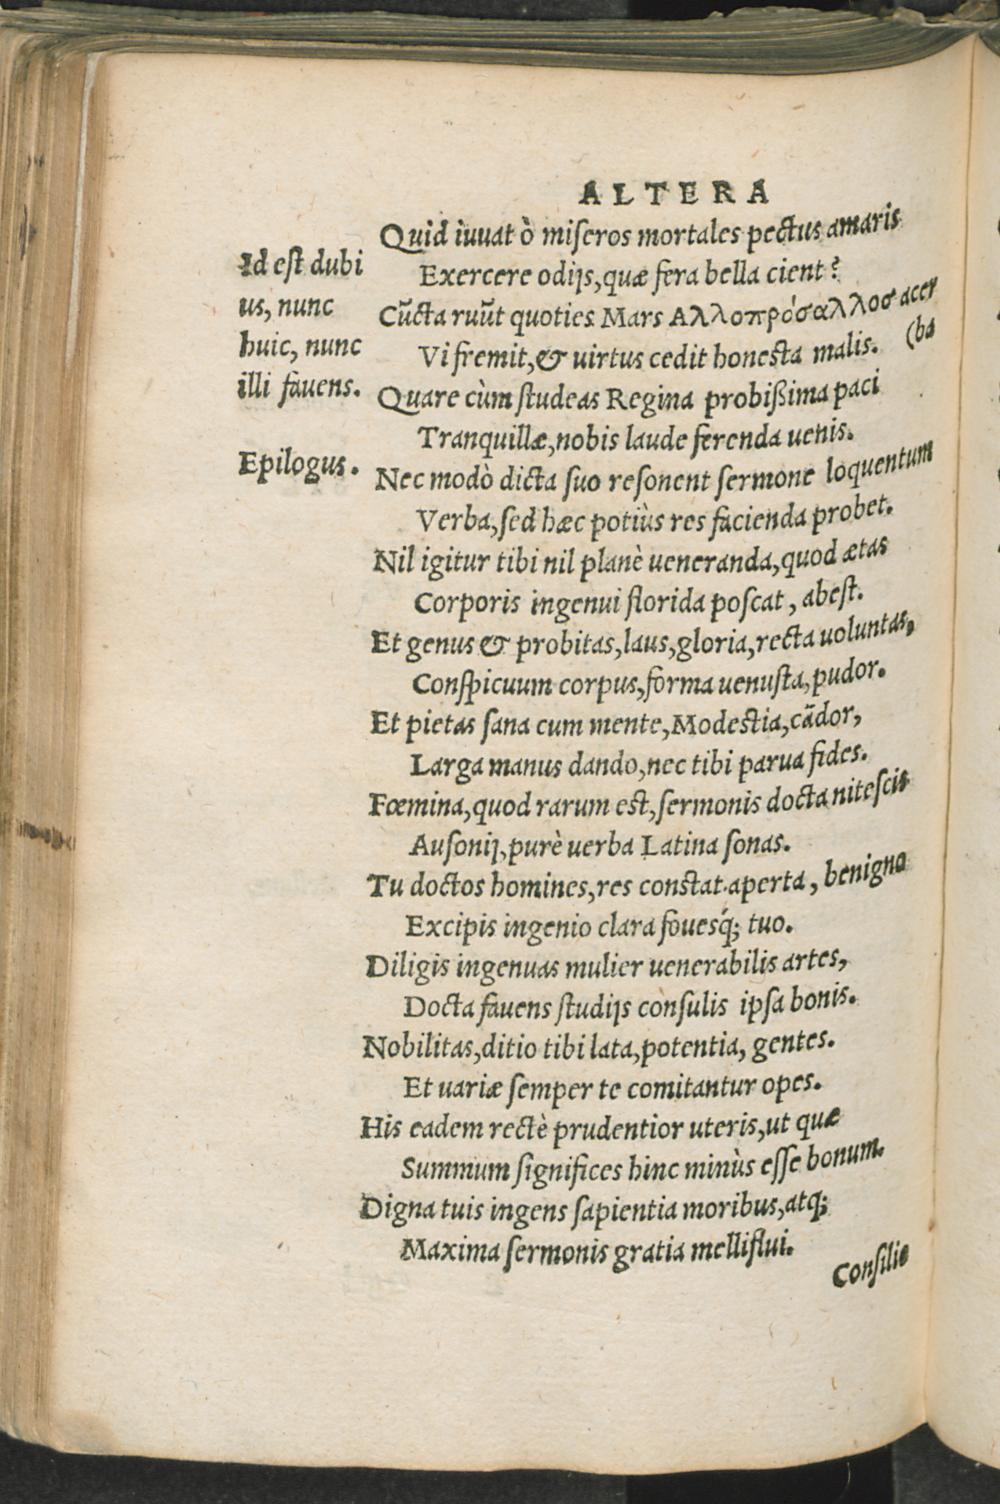 ALTERA
Quid iuuat ò miſeros mortales pectus amaris
Exercere odijs, quæ fera bella cient?
Cūcta ruūt quoties Mars Αλλοπρόσαλλος acer
(ba
Vi fremit, & uirtus cedit honesta malis.
Quare cùm ſtudeas Regina probißima paci
Tranquillæ, nobis laude ferenda uenis.
Nec modò dicta ſuo reſonent ſermone loquentum
Verba, ſed hæc potiùs res facienda probet.
Nil igitur tibi nil planè ueneranda, quod ætas
Corporis ingenui florida poſcat, abeſt.
Et genus & probitas, laus, gloria, recta uoluntas,
Conſpicuum corpus, forma uenuſta, pudor.
Et pietas ſana cum mente, Modestia, cādor,
Larga manus dando, nec tibi parua fides.
Fœmina, quod rarum est, ſermonis docta niteſcis
Auſonij, purè uerba Latina ſonas.
Tu doctos homines, res constat aperta, benigna
Excipis ingenio clara fouesq́; tuo.
Diligis ingenuas mulier uenerabilis artes,
Docta fauens ſtudijs conſulis ipſa bonis.
Nobilitas, ditio tibi lata, potentia, gentes.
Et uariæ ſemper te comitantur opes.
His eadem rectè prudentior uteris, ut quæ
Summum ſignifices hinc minùs eſſe bonum.
Digna tuis ingens ſapientia moribus, atq;
Maxima ſermonis gratia melliflui.
Conſilia
Id eſt dubi
us, nunc
huic, nunc
illi fauens.
Epilogus.